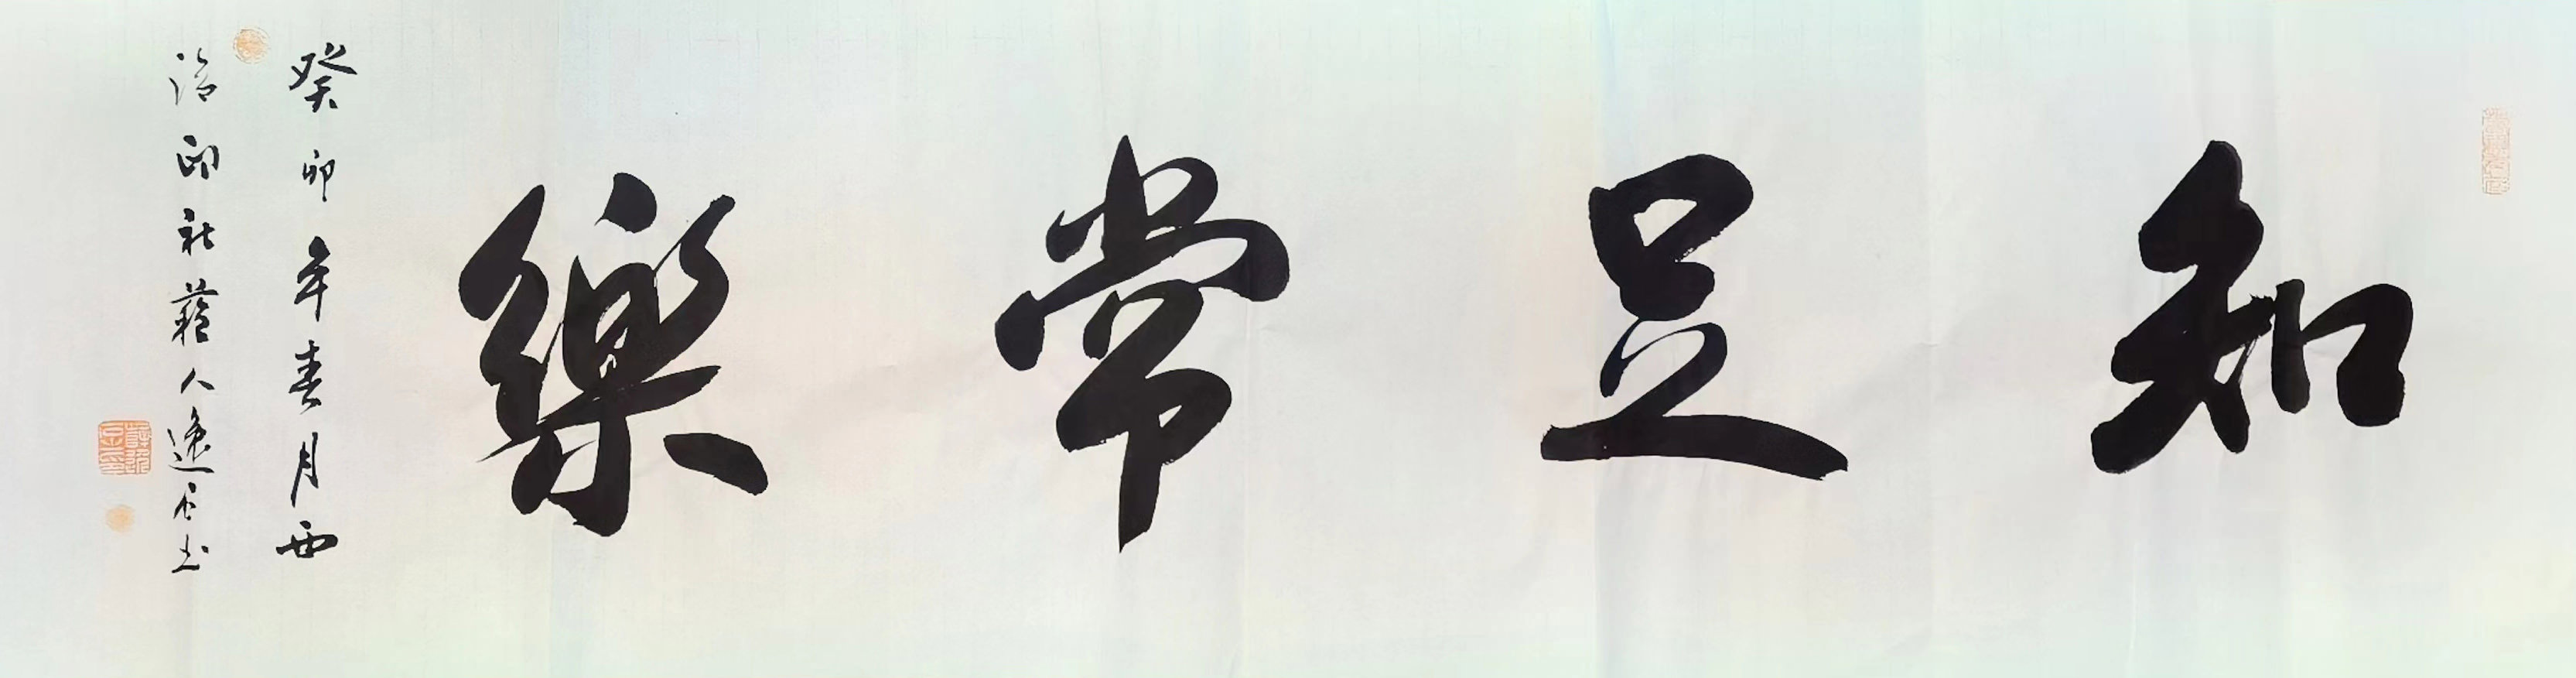 知足常樂
癸卯年春月西
泠印社藉人逸雲書